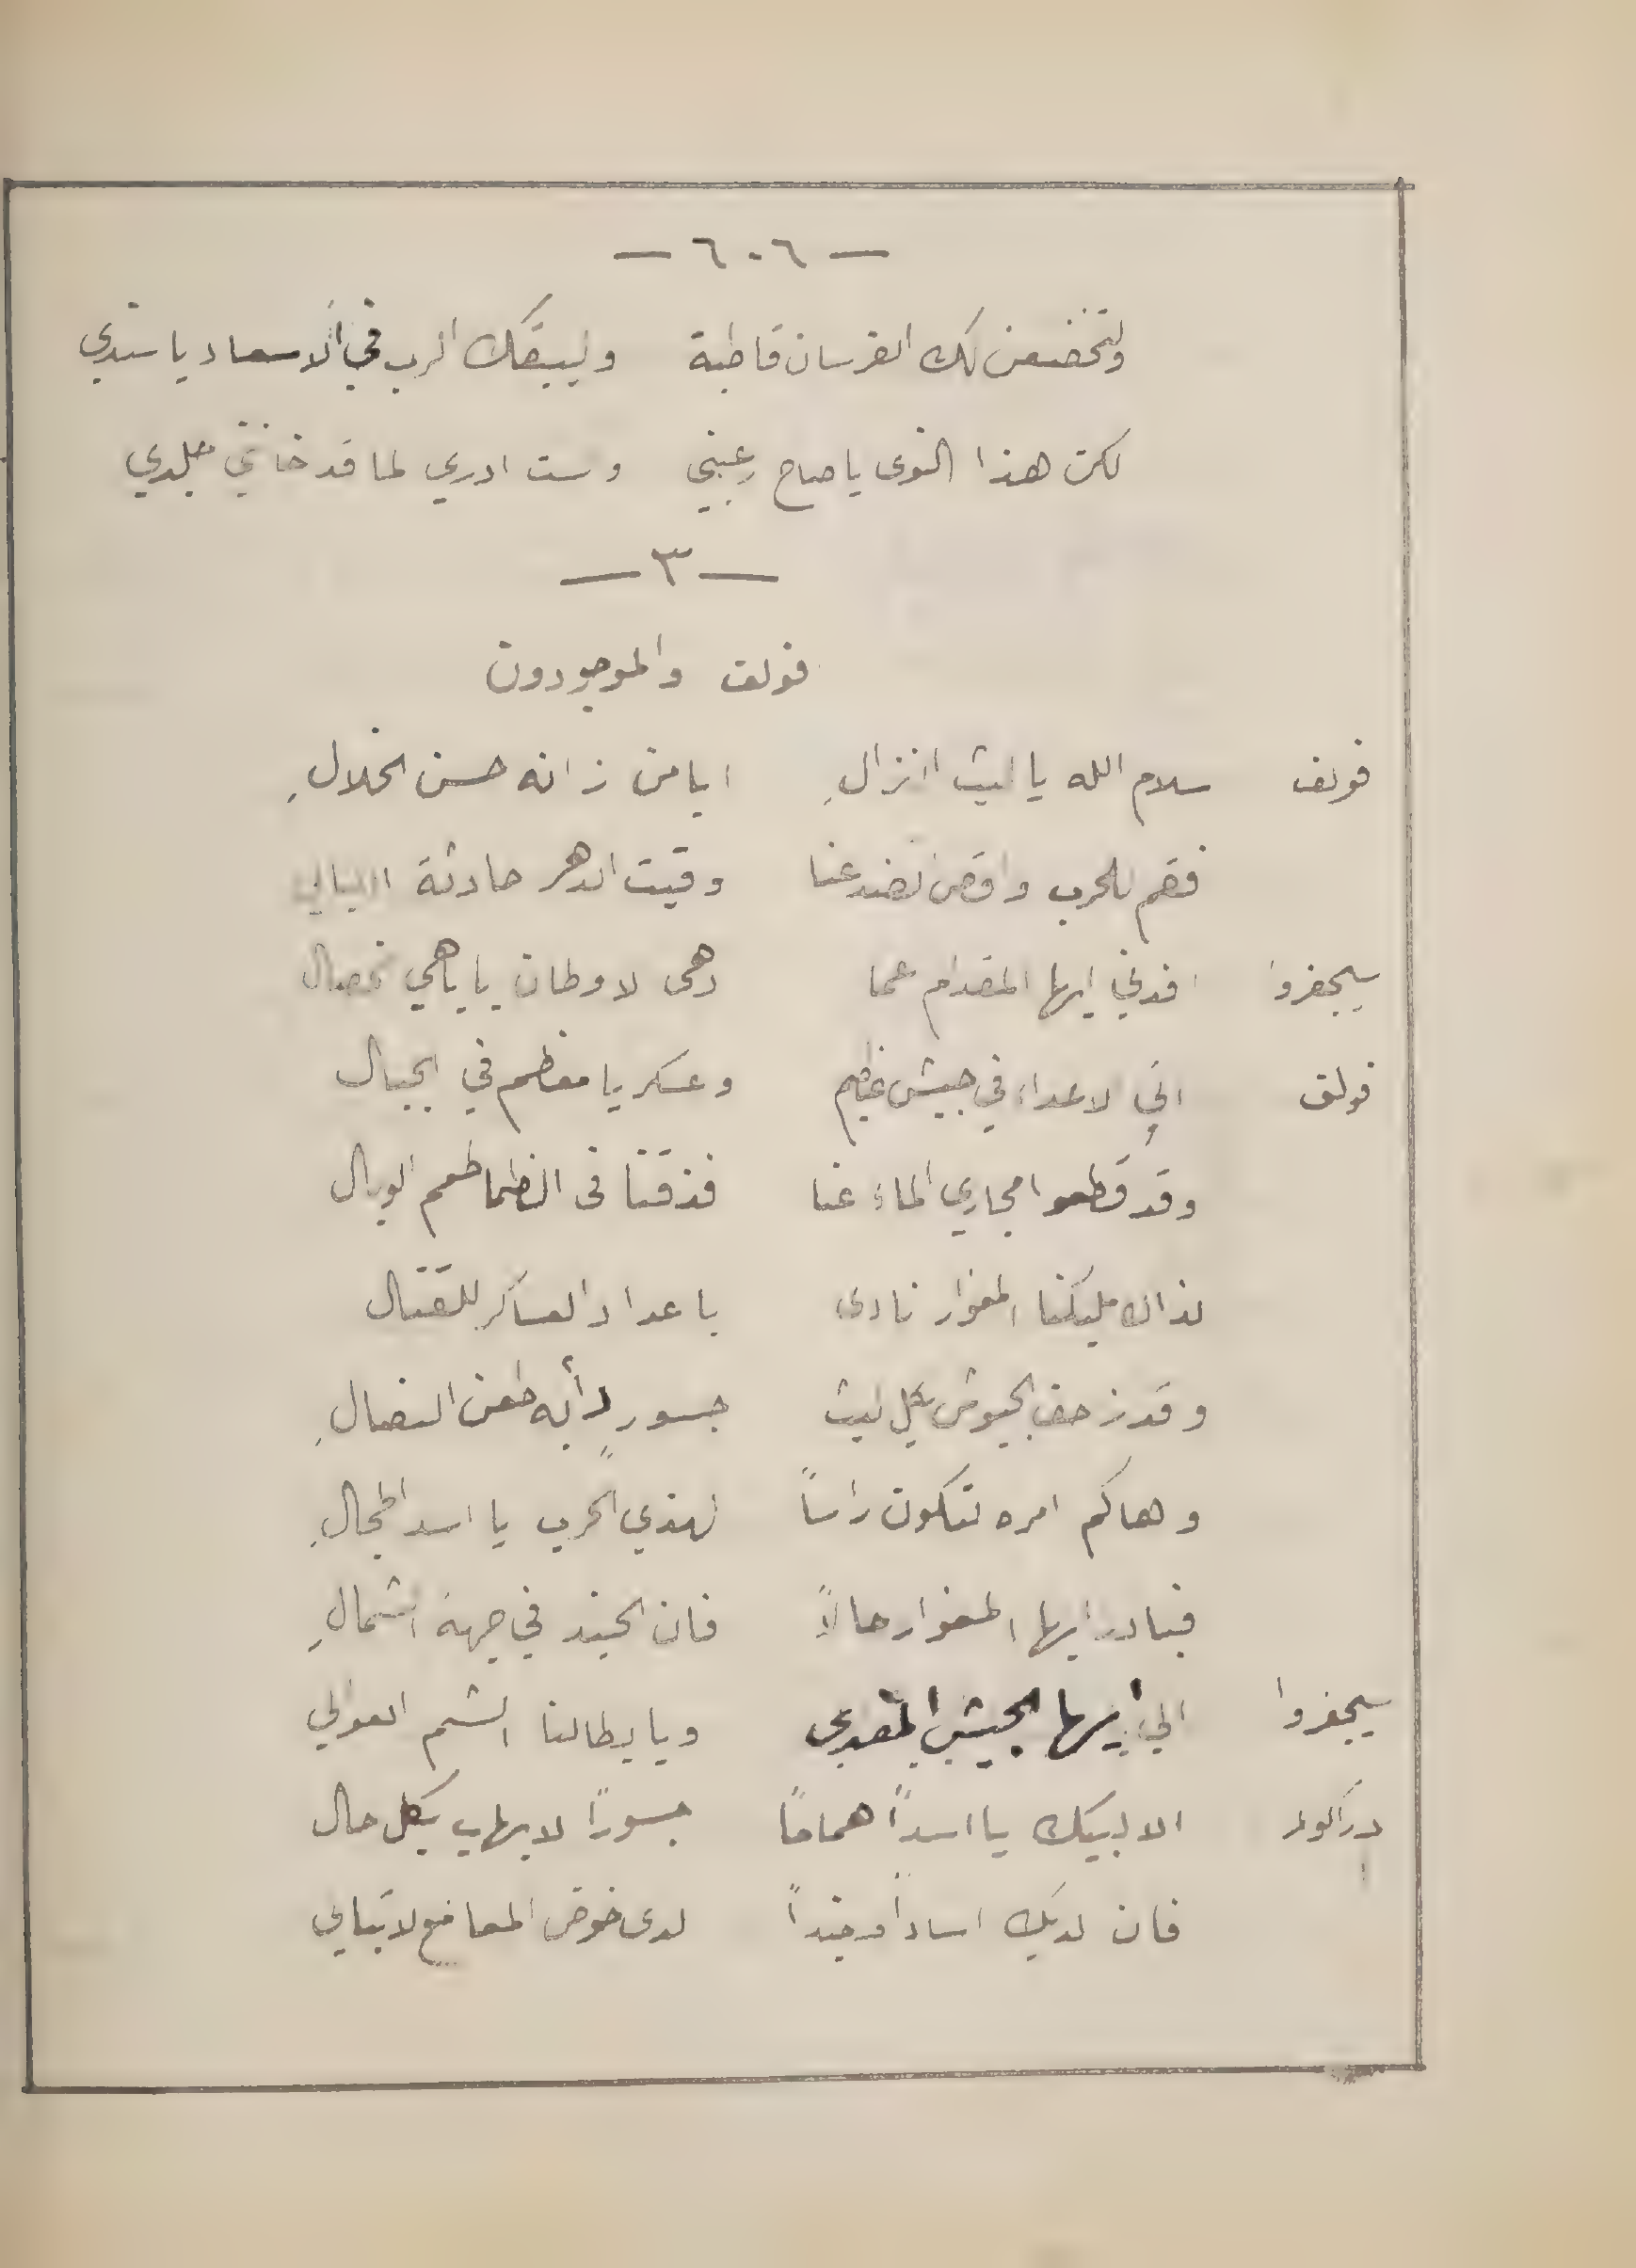 — ٦٠٦ —
ولتخضعن لك الفرسان قاطبة وليبقك الرب في الاسعاد ياسندي
لكن هذا النوى ياصاح رعبني ولست ادري لما قد خانني جلدي
— ٣ —
فولف والموجودون
فولف سلام الله يا ليث النزالِ ايا من زانه حسن الخلالِ
فقم للحرب واقض لضد عنا وقيت الدهر حادثة الليالي
سيجفروا افدني ايها المقدام عما دهى لاوطان ياباهي خصال
فولف اتى لاعداء في جيش عظيم وعسكر يا معظم في الجبال
وقد قطعوا مجاري الماء عنا فذقنا فى الظما طعم الوبال
لذاك مليكنا المغوار نادى باعداد العساكر للقتال
وقد زحف الجيوش بكل ليث جسورٍ دأبه طعن النصالِ
وهاكم امره لتكون راساً لهذي الحرب يا اسد المجالِ
فبادر ايها المغوار حالاً فان الجند في جهة الشمالِ
سيجفروا الي ايها الجيش المفدى ويا ابطالنا الشم العوالي
دراكولر الا لبيك يا اسداً هماماً جسوراً لا يهاب بكل حال
فان لديك اساداً وجنداً لدى خوض المعامع لا تبالي